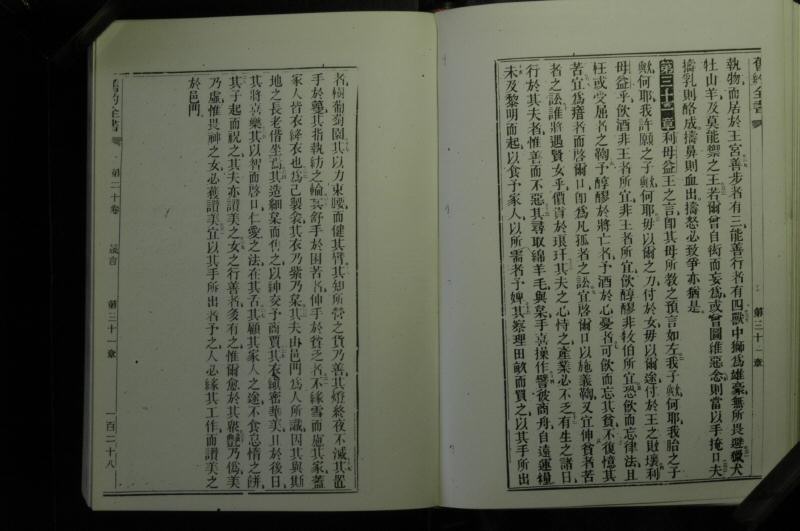 舊約全書
第三十一章
執物而居於王宮善步者有三能善行者有四獸中獅為雄豪無所畏避獵犬
牡山羊及莫能禦之王若爾曾自衒而妄為或曾圖維惡念則當以手掩口夫
擣乳則酪成擣鼻則血出擣怒必致爭亦猶是
第三十一章利母益王之言即其母所教之預言如左我子歟何耶我胎之子
歟何耶我許願之子歟何耶毋以爾之力付於女毋以爾途付於王之敗壞利
母益乎飲酒非王者所宜非王者所宜飲醇醪非牧伯所宜恐飲而忘律法且
枉或受屈者之鞫予醇醪於將亡者予酒於心憂者可飲而忘其貧不復憶其
苦宜為瘖者而啓爾口即為凡孤者之訟宜啓爾口以施義鞫又宜伸貧者苦
者之訟誰將遇賢女乎價貴於琅玕其夫之心恃之產業必不乏有生之諸日
行於其夫者惟善而不惡其尋取綿羊毛與枲手喜操作譬彼商舟自遠運糧
未及黎明而起以食予家人以所需者予婢其察理田畝而買之以其手所出
者樹葡萄園其以力束腰而健其臂其知所營之貨乃善其燈終夜不滅其置
手於籰其指執紡之輪其舒手於困苦者伸手於貧乏者不緣雪而慮其家蓋
家人皆衣絳衣也為己製衾其衣乃紫乃枲其夫山邑門為人所識因其與斯
地之長老偕坐其造細枲而售之以紳交予商賈其衣縝密華美且於後日
其將喜樂其以智而啓口仁愛之法在其舌其顧其家人之途不食怠惰之餅
其子起而祝之其夫亦讚美之女之行善者多有之惟爾愈於其眾艷乃偽美
乃虛惟畏神之女必獲讚美宜以其手所出者予之人必緣其工作而讚美之
於邑門
舊約全書
第二十卷
箴言
第三十一章
一百二十八